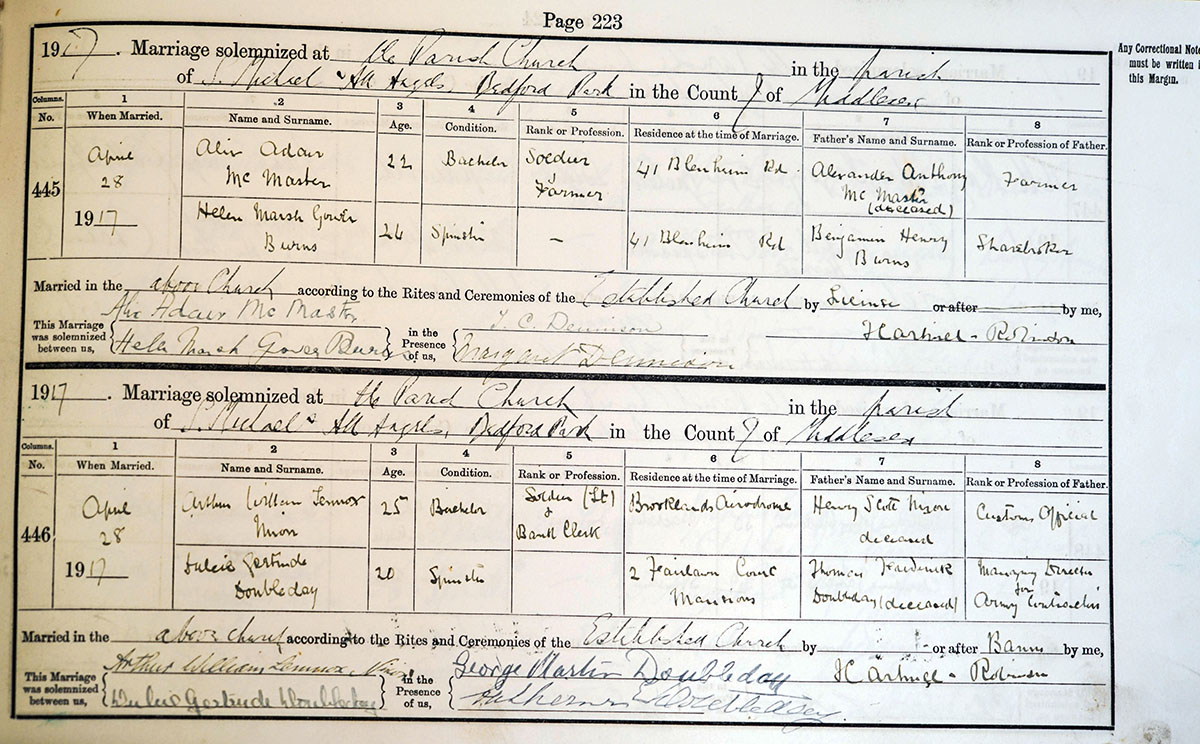 Page 223
1917. Marriage solemnized at the Parish Church in the parish
of S. Michael & All Angels, Bedford Park in the County of Middlesex
Any Correctional Note
must be written i
this Margin.
Columns. 1 2 3 4 5 6 7 8
No. When Married. Name and Surname. Age. Condition. Rank or Profession. Residence at the time of Marriage. Father's Name and Surname. Rank or Profession of Father.
445
April
28
1917
Adair
McMaster
22 Bachelor Soldier
Farmer
41 Blenheim Rd.
Alexander Anthony
McMaster
(deceased)
Farmer
Helen Marsh Gover
Burns
24 Spinster — 41 Blenheim Rd
Benjamin Henry
Burns
Sharebroker
Married in the above Church according to the Rites and Ceremonies of the Established Church by License or after by me,
Adair McMaster
T. C. Dennison
Hartnel - Robinson
This Marriage
was solemnized
between us,
Helen Marsh Gover Burns
in the
Presence
of us,
Margaret Dennison
1917. Marriage solemnized at the Parish Church in the parish
of S. Michael & All Angels, Bedford Park in the County of Middlesex
Columns. 1 2 3 4 5 6 7 8
No. When Married. Name and Surname. Age. Condition. Rank or Profession. Residence at the time of Marriage. Father's Name and Surname. Rank or Profession of Father.
446
April
28
1917
Arthur William Lennox
Nixon
25 Bachelor Soldier (Lt)
&
Bank Clerk
Brooklands Airodrome
Henry Scott Nixon
deceased
Customs Official
Dulcie Gertrude
Doubleday
20 Spinster
2 Fairlawn Court
Mansions
Thomas Frederick
Doubleday (deceased)
Managing Director
for
Army Contractors
Married in the above church according to the Rites and Ceremonies of the Established Church by or after Banns by me,
Arthur William Lennox Nixon
George Martin Doubleday
Robinson
This Marriage
was solemnized
between us,
Dulcie Gertrude Doubleday
in the
Presence
of us,
Doubleday.